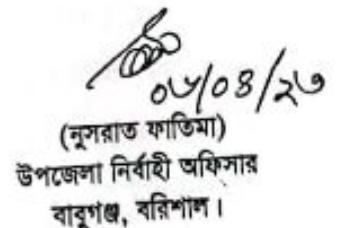 ০৬/০৪/২৩
(নুসরাত ফাতিমা)
উপজেলা নির্বাহী অফিসার
বাবুগঞ্জ, বরিশাল।